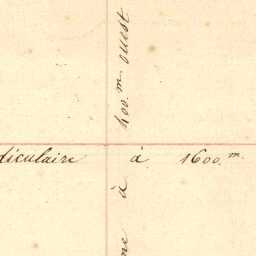 diculaire à 1600.m
me à 400.m ouest